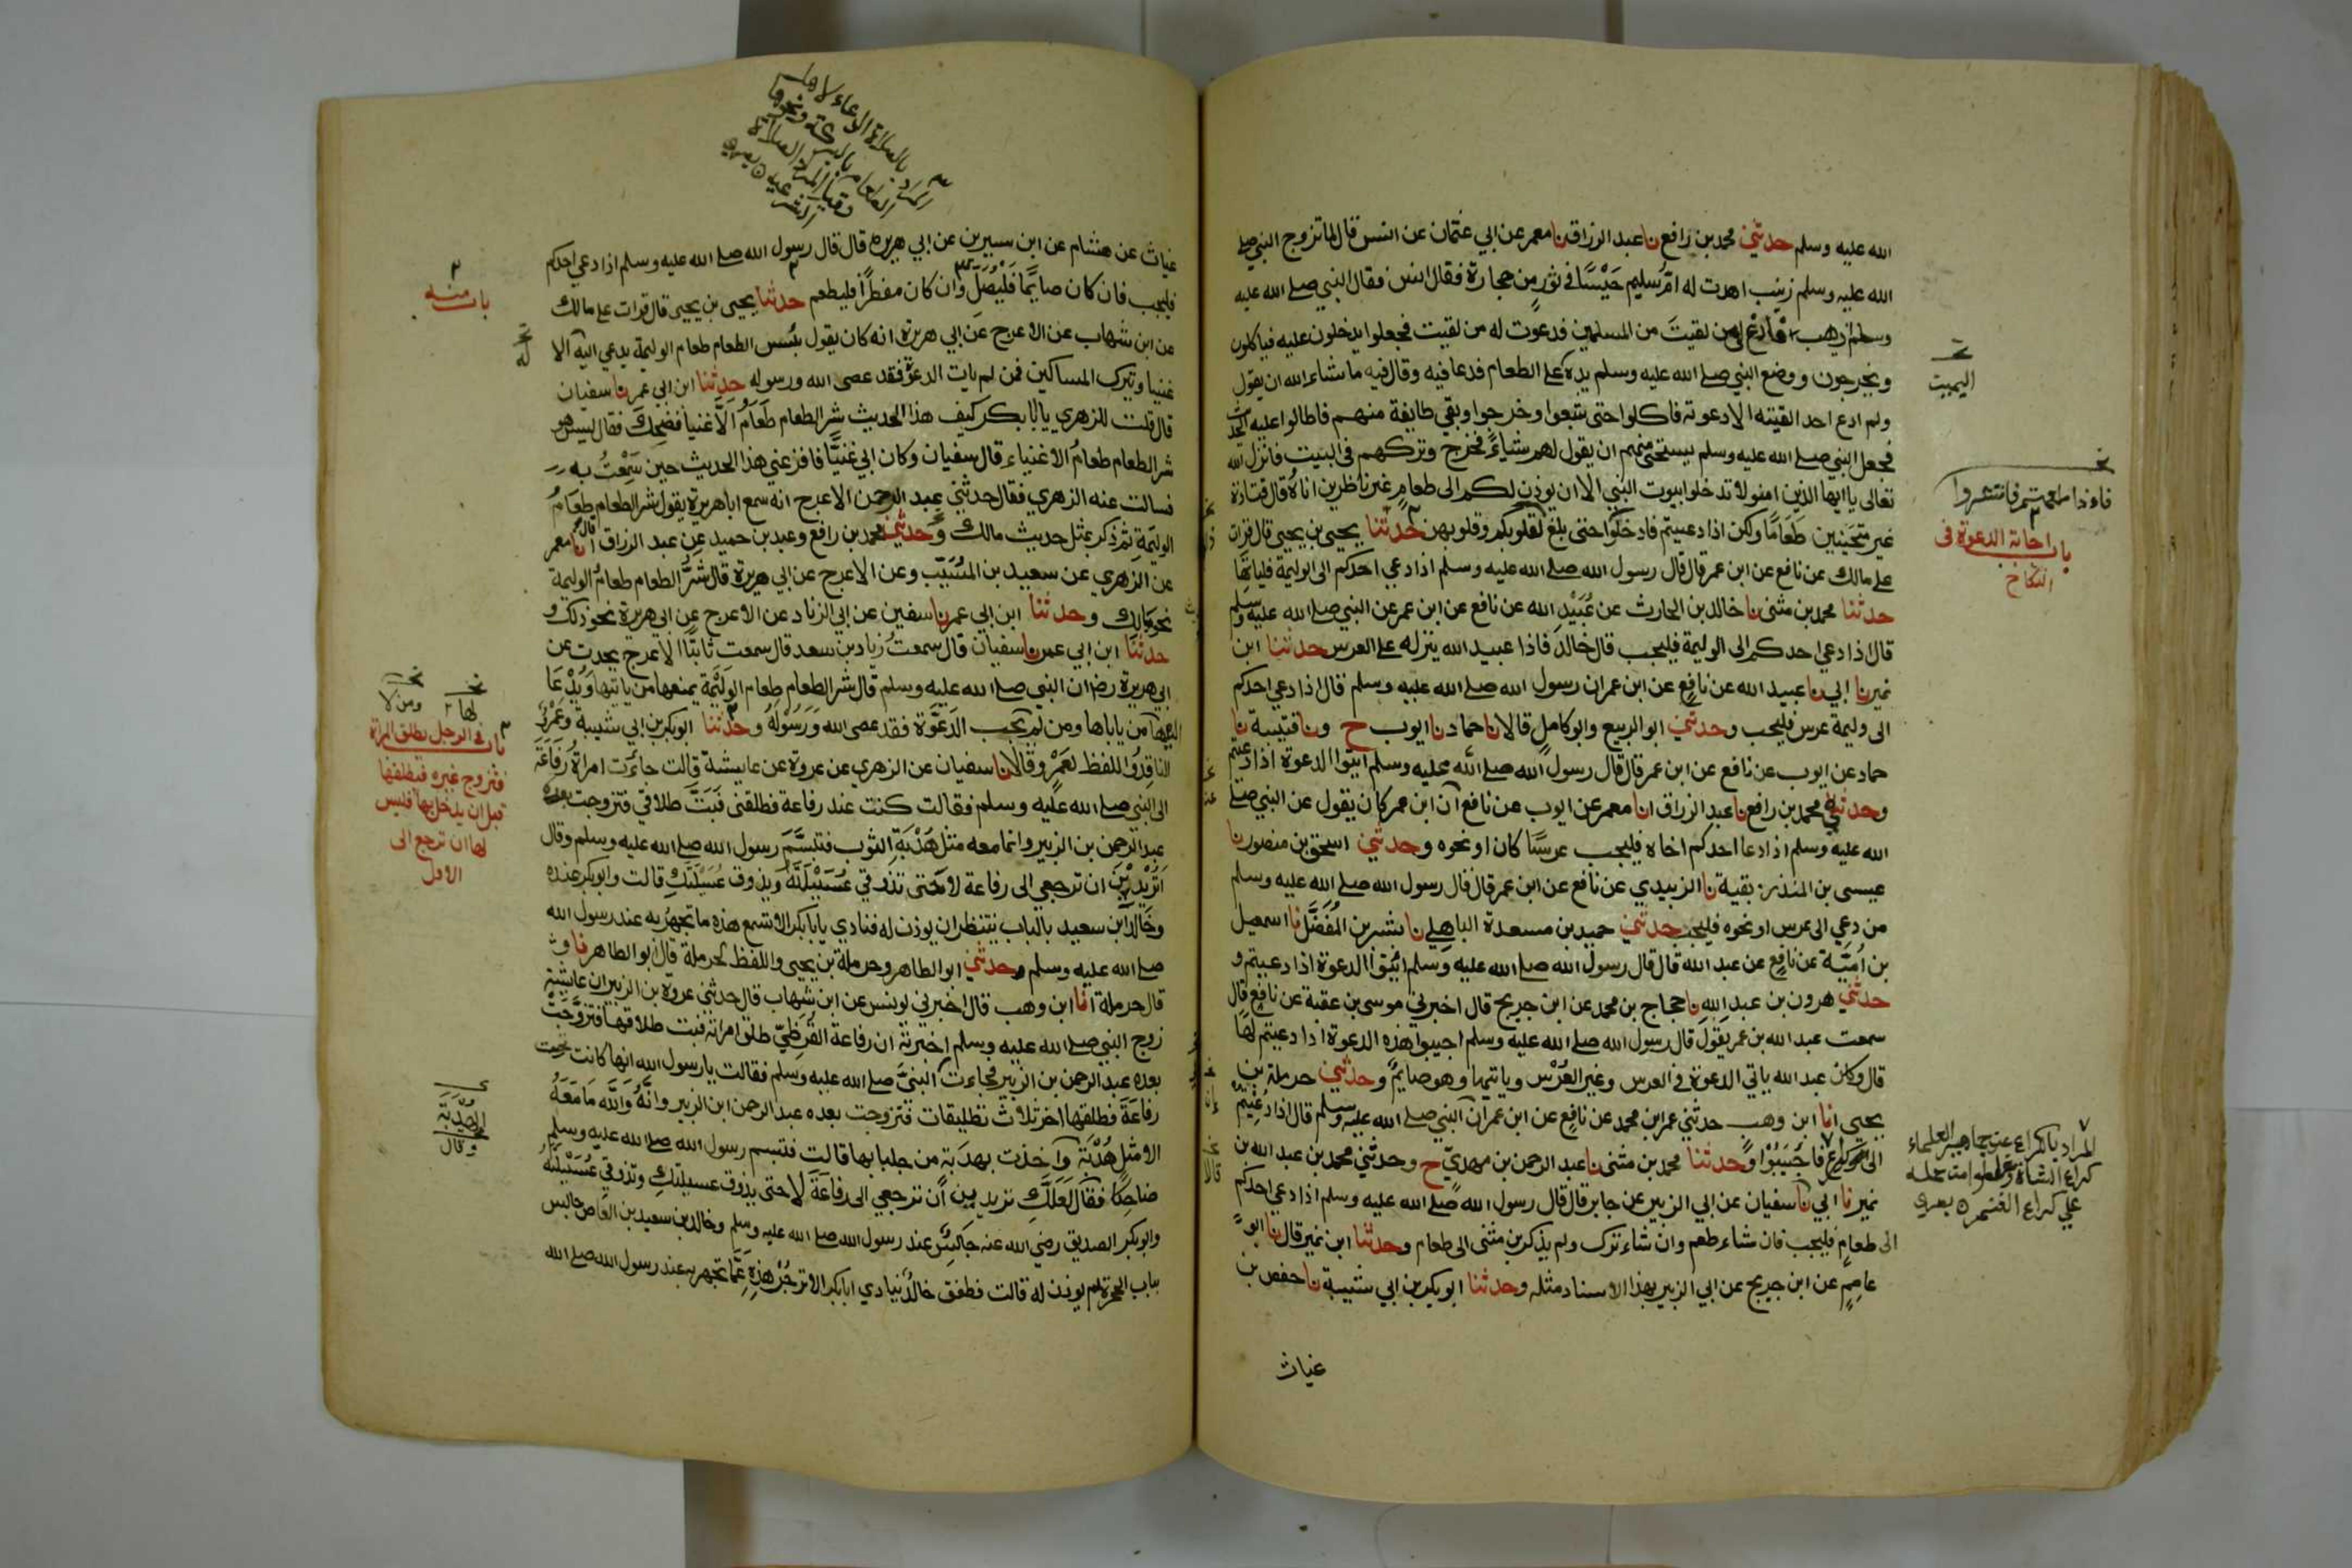 الله عليه وسلم حدثني محمد بن رافع نا عبد الرزاق نا معمر عن ابي عثمان عن انس قال لما تزوج النبي صلے
الله عليه وسلم زينب اهدت له ام سليم حيسا في تور من حجارة فقال انس فقال النبي صلے الله عليه
وسلم اذهب فادع لي من لقيت من المسلمين فدعوت له من لقيت فجعلوا يدخلون عليه فياكلون
ويخرجون ووضع النبي صلے الله عليه وسلم يده على الطعام فدعا فيه وقال فيه ما شاء الله ان يقول
ولم ادع احد القيته الا دعوته فاكلوا حتى شبعوا وخرجوا وبقي طايفة منهم فاطالوا عليه الحديث
فجعل النبي صلے الله عليه وسلم يستحي منهم ان يقول لهم شياء فخرج وتركهم في البيت فانزل الله
تعالى يا ايها الذين امنو لا تدخلوا بيوت النبي الا ان يوذن لكم الى طعام غير ناظرين اناه قال قتادة
غير متحينين طعاما ولكن اذا دعيتم فادخلوا حتى بلغ لقلوبكم وقلوبهن حدثنا يحيى بن يحيى قال قرات
على مالك عن نافع عن ابن عمر قال قال رسول الله صلے الله عليه وسلم اذا دعي احدكم الى الوليمة فلياتها
حدثنا محمد بن مثنى نا خالد بن الحارث عن عبيد الله عن نافع عن ابن عمر عن النبي صلے الله عليه وسلم
قال اذا دعي احدكم الى الوليمة فليجب قال خالد فاذا عبيد الله ينزله على العرس حدثنا ابن
نمير نا ابي نا عبيد الله عن نافع عن ابن عمر ان رسول الله صلے الله عليه وسلم قال اذا دعي احدكم
الى وليمة عرس فليجب وحدثني ابو الربيع وابو كامل قالا نا حماد نا ايوب ح ونا قتيبة نا
حماد عن ايوب عن نافع عن ابن عمر قال قال رسول الله صلے الله عليه وسلم ايتوا الدعوة اذا دعيتم
وحدثني محمد بن رافع نا عبد الرزاق انا معمر عن ايوب عن نافع ان ابن عمر كان يقول عن النبي صلے
الله عليه وسلم اذا دعا احدكم اخاه فليجب عرسا كان او نحوه وحدثني اسحق بن منصور نا
عيسى بن المنذر نا بقية نا الزبيدي عن نافع عن ابن عمر قال قال رسول الله صلے الله عليه وسلم
من دعي الى عرس او نحوه فليجب حدثني حميد بن مسعدة الباهلي نا بشر بن المفضل نا اسمعيل
بن امية عن نافع عن عبد الله قال قال رسول الله صلے الله عليه وسلم ايتوا الدعوة اذا دعيتم و
حدثني هرون بن عبد الله نا حجاج بن محمد عن ابن جريج قال اخبرني موسى بن عقبة عن نافع قال
سمعت عبد الله بن عمر يقول قال رسول الله صلے الله عليه وسلم اجيبوا هذه الدعوة اذا دعيتم لها
قال وكان عبد الله ياتي الدعوة في العرس وغير العرس وياتيها وهو صايم وحدثني حرملة بن
يحيى انا ابن وهب حدثني عمر بن محمد عن نافع عن ابن عمر ان النبي صلے الله عليه وسلم قال اذا دعيتم
الى كراع فاجيبوا وحدثنا محمد بن مثنى نا عبد الرحمن بن مهدي ح وحدثني محمد بن عبد الله بن
نمير نا ابي نا سفيان عن ابي الزبير عن جابر قال قال رسول الله صلے الله عليه وسلم اذا دعي احدكم
الى طعام فليجب فان شاء طعم وان شاء ترك ولم يذكر بن مثنى الى طعام وحدثنا ابن نمير قال نا ابو
عاصم عن ابن جريج عن ابي الزبير بهذا الاسناد مثله وحدثنا ابو بكر بن ابي شيبة نا حفص بن
غياث
البيت
فاءذا طعمتم فانتشروا
باب اجابة الدعوة في
النكاح
المراد بالكراع عند جماهير العلماء
كراع الشاة وغلطوا من حمله
على كراع الغنم
المراد بالصلاة الدعاء لاهل
الطعام بالبركة ونحوها
وقيل المراد الصلاة
الشرعية
غياث عن هشام عن ابن سيرين عن ابي هريرة قال قال رسول الله صلے الله عليه وسلم اذا دعي احدكم
فليجب فان كان صايما فليصل وان كان مفطرا فليطعم حدثنا يحيى بن يحيى قال قرات على مالك
عن ابن شهاب عن الاعرج عن ابي هريرة انه كان يقول بئس الطعام طعام الوليمة يدعي اليه الا
غنيا ويترك المساكين فمن لم يات الدعوة فقد عصى الله ورسوله حدثنا ابن ابي عمر نا سفيان
قال قلت للزهري يا ابا بكر كيف هذا الحديث شر الطعام طعام الاغنيا فضحك فقال ليس هو
شر الطعام طعام الاغنياء قال سفيان وكان ابي غنيا فافزعني هذا الحديث حين سمعت به
فسالت عنه الزهري فقال حدثني عبد الرحمن الاعرج انه سمع ابا هريرة يقول شر الطعام طعام
الوليمة ثم ذكر بمثل حديث مالك وحدثني محمد بن رافع وعبد بن حميد عن عبد الرزاق قال انا معمر
عن الزهري عن سعيد بن المسيب وعن الاعرج عن ابي هريرة قال شر الطعام طعام الوليمة
نحو مالك وحدثنا ابن ابي عمر نا سفين عن ابي الزناد عن الاعرج عن ابي هريرة نحو ذلك و
حدثنا ابن ابي عمر نا سفيان قال سمعت زياد بن سعد قال سمعت ثابتا الاعرج يحدث عن
ابي هريرة رض ان النبي صلے الله عليه وسلم قال شر الطعام طعام الوليمة يمنعها من ياتيها ويدعا
اليها من ياباها ومن لم يجب الدعوة فقد عصى الله ورسوله وحدثنا ابو بكر بن ابي شيبة وعمرو
الناقد واللفظ لعمرو قالا نا سفيان عن الزهري عن عروة عن عايشة قالت جاءت امراة رفاعة
الى النبي صلے الله عليه وسلم فقالت كنت عند رفاعة فطلقني فبت طلاقي فتزوجت بعده
عبد الرحمن بن الزبير وانما معه مثل هدبة الثوب فتبسم رسول الله صلے الله عليه وسلم وقال
اتريدين ان ترجعي الى رفاعة لا حتى تذوقي عسيلته ويذوق عسيلتك قالت وابو بكر عنده
وخالد بن سعيد بالباب ينتظر ان يوذن له فنادي يا ابا بكر الا تسمع هذه ما تجهر به عند رسول الله
صلے الله عليه وسلم وحدثني ابو الطاهر وحرملة بن يحيى واللفظ لحرملة قال ابو الطاهر نا و
قال حرملة انا ابن وهب قال اخبرني يونس عن ابن شهاب قال حدثني عروة بن الزبير ان عايشة
زوج النبي صلے الله عليه وسلم اخبرته ان رفاعة القرظي طلق امراته فبت طلاقها فتزوجت
بعده عبد الرحمن بن الزبير فجاءت النبي صلے الله عليه وسلم فقالت يا رسول الله انها كانت تحت
رفاعة فطلقها اخر ثلاث تطليقات فتزوجت بعده عبد الرحمن ابن الزبير وانه والله ما معه
الا مثل هدبة واخذت بهدبة من جلبابها قالت فتبسم رسول الله صلے الله عليه وسلم
ضاحكا فقال لعلك تريدين ان ترجعي الى رفاعة لا حتى يذوق عسيلتك وتذوقي عسيلته
وابو بكر الصديق رضي الله عنه جالس عند رسول الله صلے الله عليه وسلم وخالد بن سعيد بن العاص جالس
بباب الحجرة لم يوذن له قالت فطفق خالد ينادي ابا بكر الا تزجر هذه عما تجهر به عند رسول الله صلے الله
باب منه
لها
ومن لا
باب في الرجل يطلق المراة
فتزوج غيره فيطلقها
قبل ان يدخل بها فليس
لها ان ترجع الى
الاول
الهدبة
وقال